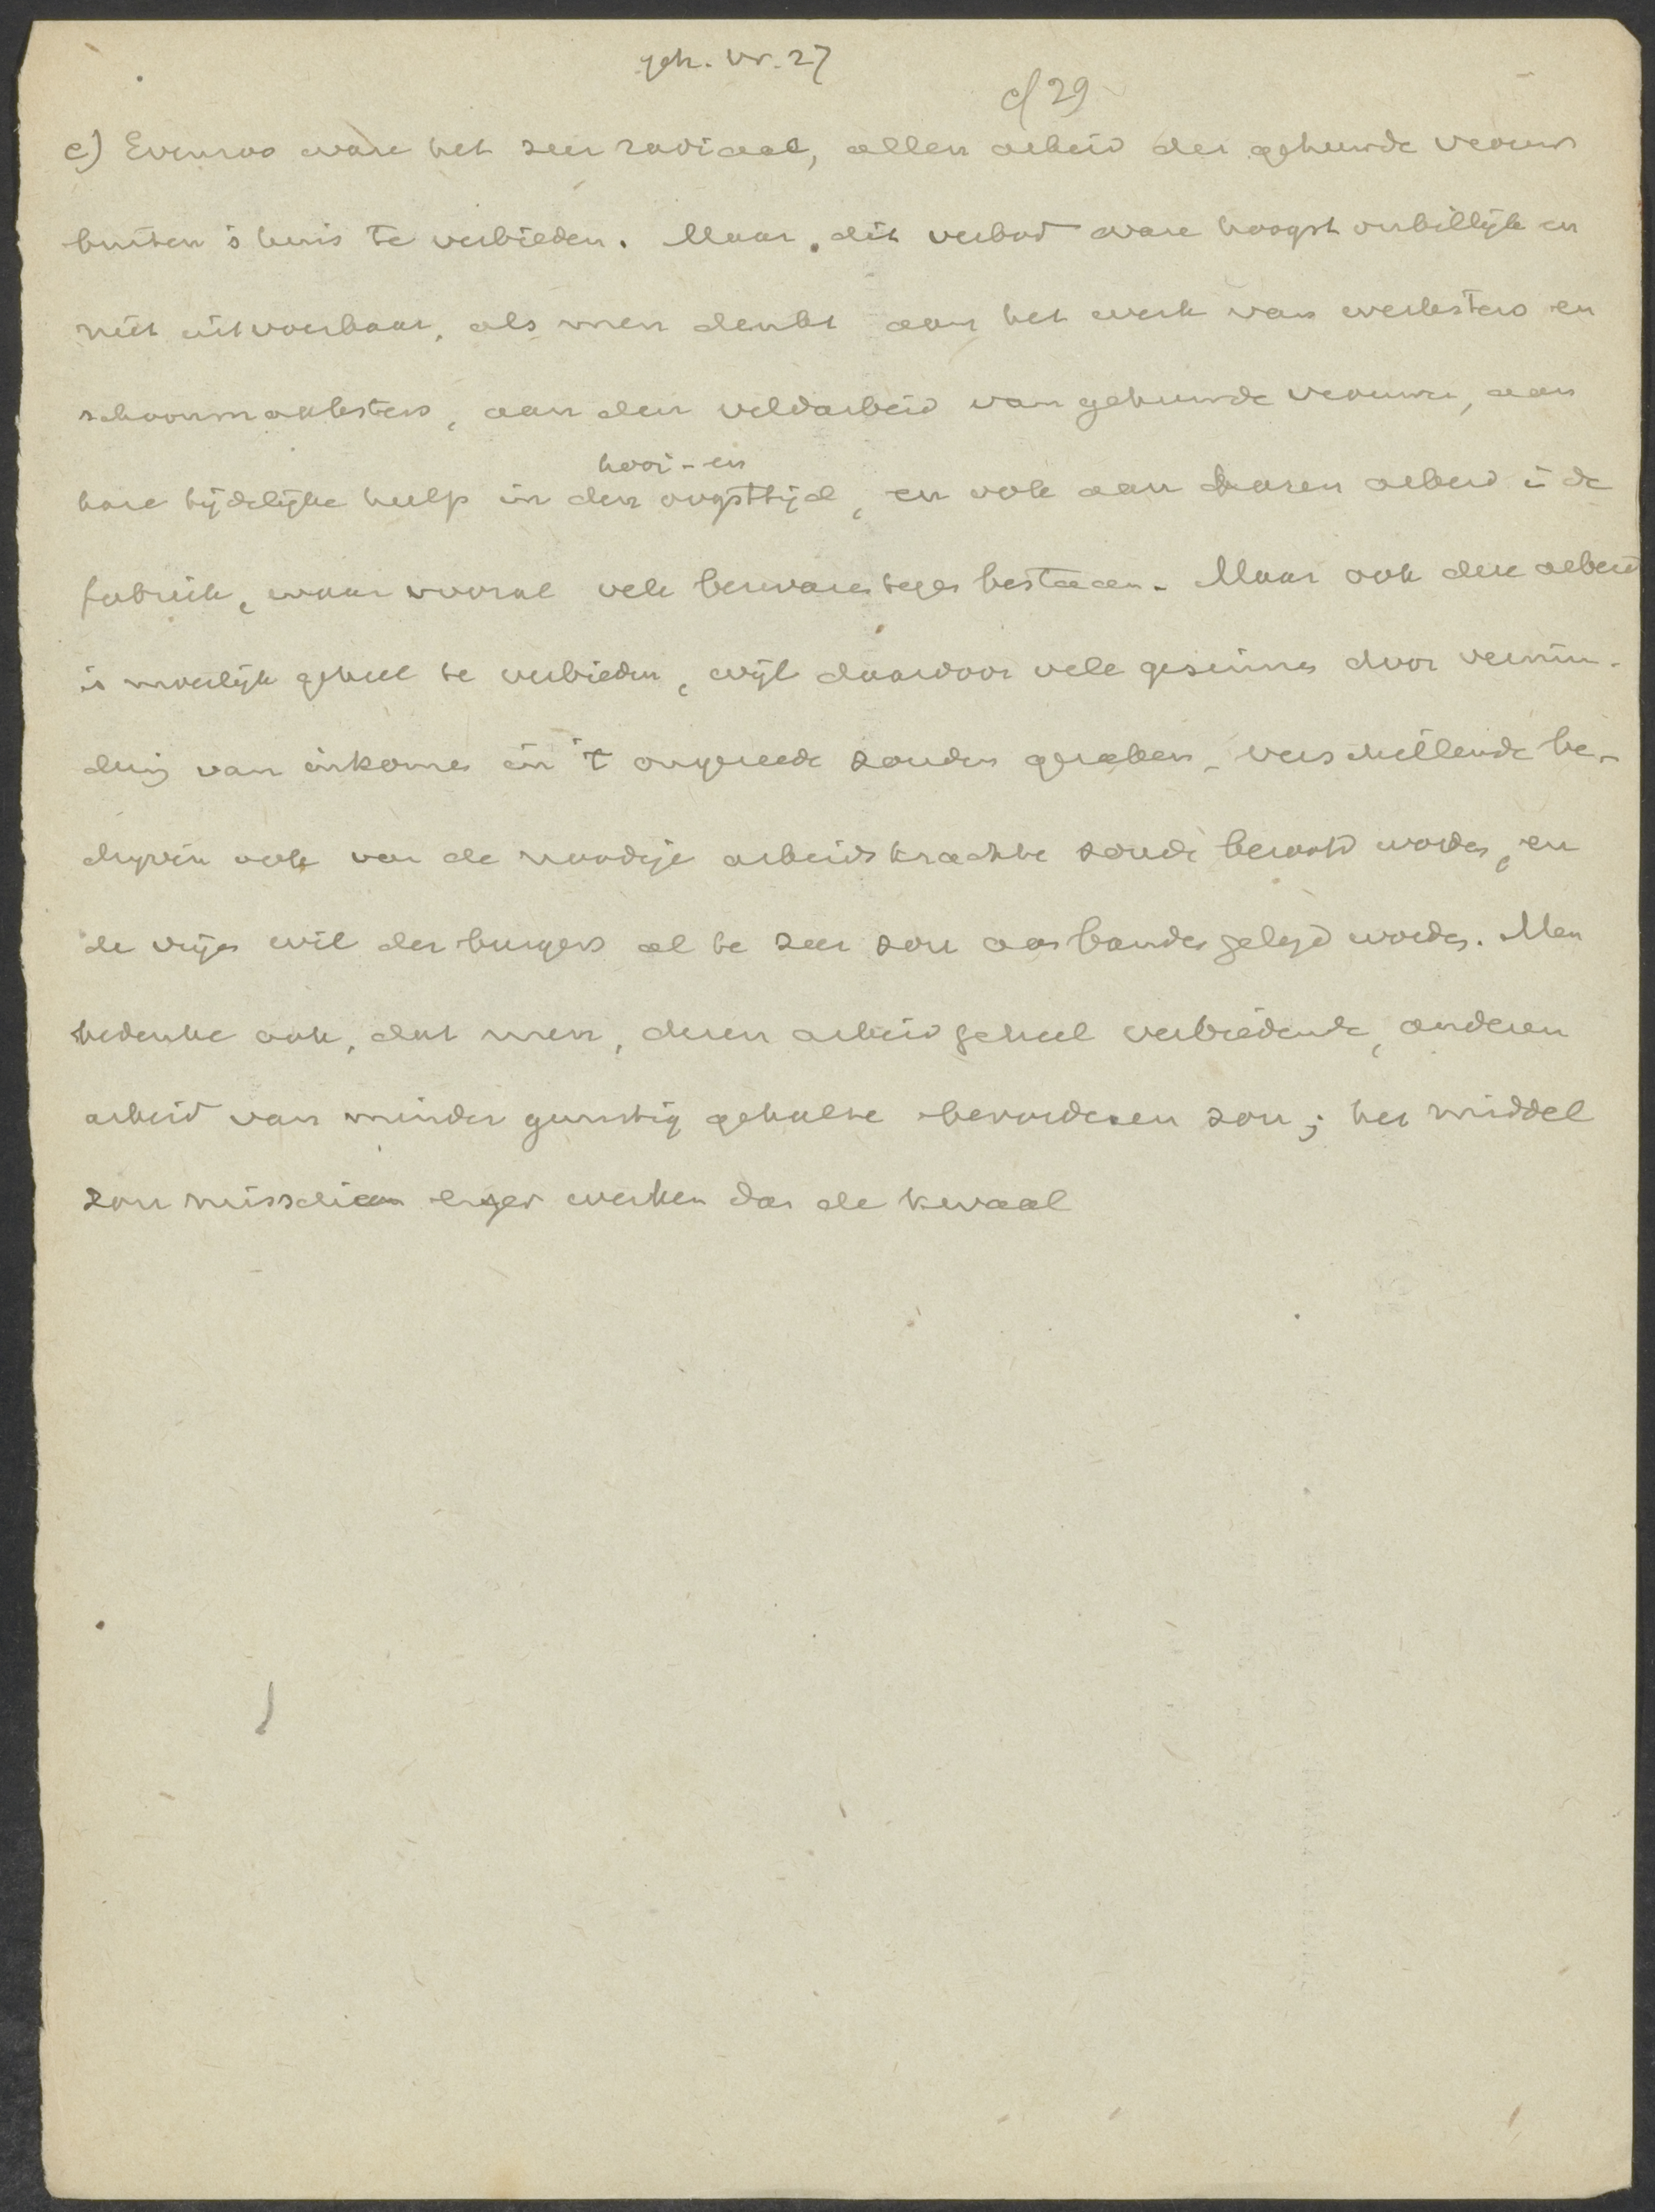 geh. vr. 27
c/ 29
c) Evenzoo ware het zeer radicaal, allen arbeid der gehuwde vrouw
buiten 's huis te verbieden. Maar dit verbod ware hoogst onbillijk en
niet uitvoerbaar, als men denkt aan het werk van werksters en
schoonmaaksters, aan den veldarbeid van gehuwde vrouwen, aan
hooi- en
hare tijdelijke hulp in den oogsttijd, en ook aan haren arbeid in de
fabriek, waar vooral vele bezwaren tegen bestaan. Maar ook deze arbeid
is moeilijk geheel te verbieden, wijl daardoor vele gezinnen door vermin-
dring van inkomen in 't ongereede zouden geraken, verschillende be-
drijven ook van de noodige arbeidskrachten zouden beroofd worden, en
de vrije wil der burgers al te zeer zou aan banden gelegd worden. Men
bedenke ook, dat men, dezen arbeid geheel verbiedende, anderen
arbeid van minder gunstig gehalte bevorderen zou; het middel
zou misschien erger werken dan de kwaal